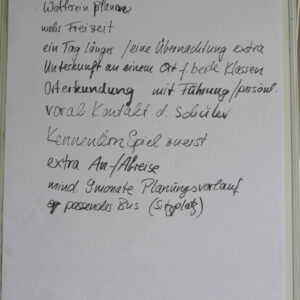 mehr Freizeit
ein Tag länger / eine Übernachtung extra
Unterkunft an einem Ort / beide Klassen
Orterkundung mit Führung / persönl.
vorab Kontakt d. Schüler
Kennenlernspiel zuerst
extra An-/Abreise
mind. 9 monate Planungsvorlauf
passendes Bus (Sitzplatz)